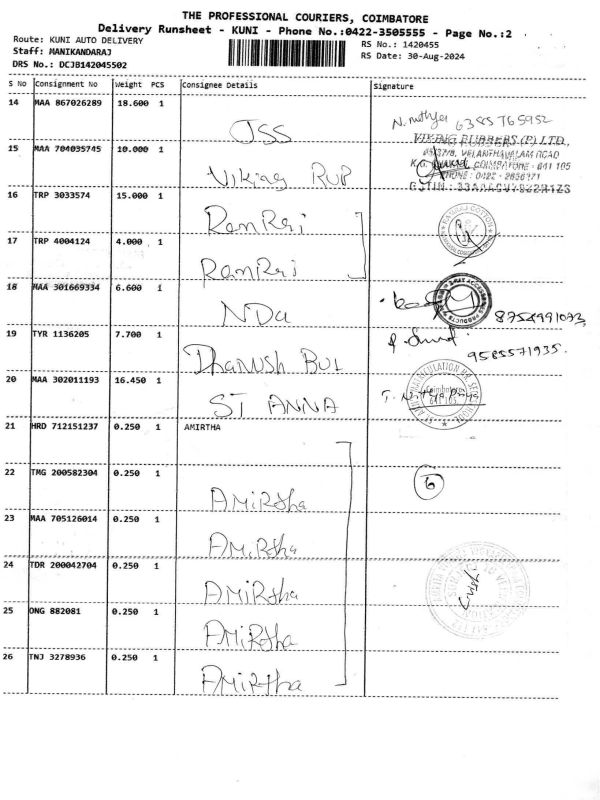 THE PROFESSIONAL COURIERS, COIMBATORE
Delivery Runsheet - KUNI - Phone No.:0422-3505555 - Page No.:2
Route: KUNI AUTO DELIVERY
RS No.: 1420455
Staff: MANIKANDARAJ
RS Date: 30-Aug-2024
DRS No.: DCJB142045502
S No Consignment No Weight PCS Consignee Details Signature
14 MAA 867026289 18.600 1 JSS 6385765952
15 MAA 704035745 10.000 1 Viking RUP
VIKING RUBBERS (P) LTD.,
VELANTHAVALAM ROAD
COIMBATORE - 641 105
PHONE : 0422 - 2656971
16 TRP 3033574 15.000 1 RamRaj
17 TRP 4004124 4.000 1 RamRaj
18 MAA 301669334 6.600 1 NDa
19 TYR 1136205 7.700 1 Dhanush
20 MAA 302011193 16.450 1 ST ANNA
21 HRD 712151237 0.250 1 AMIRTHA
22 TMG 200582304 0.250 1 AMiRtha 6
23 MAA 705126014 0.250 1 AMiRtha
24 TDR 200042704 0.250 1 AMiRtha
25 ONG 882081 0.250 1 AMiRtha
26 TNJ 3278936 0.250 1 AMiRtha